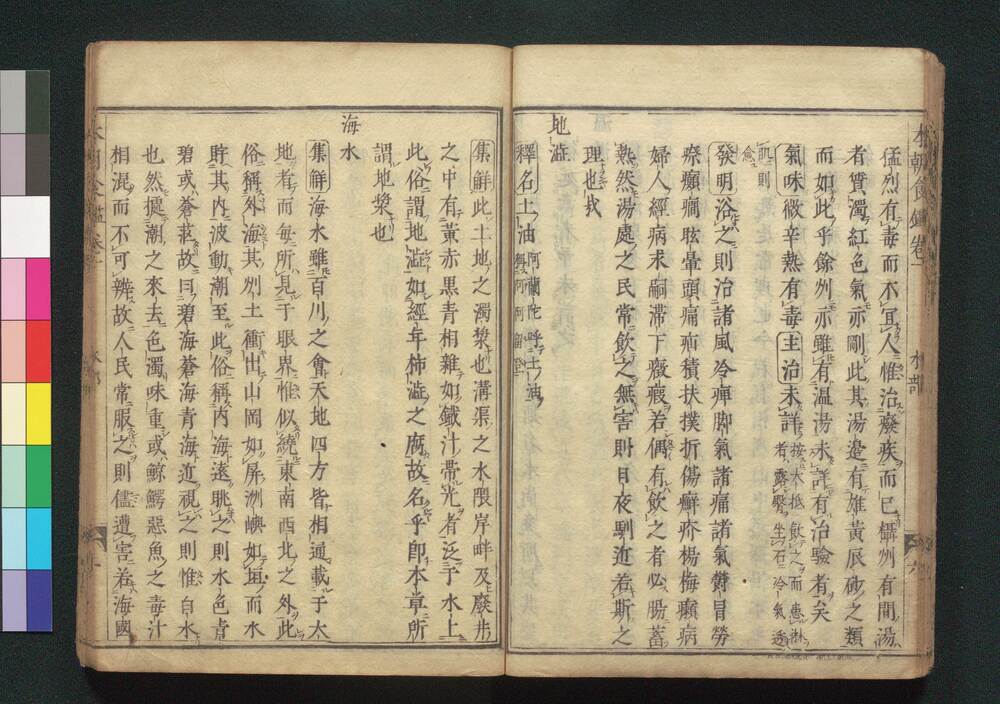 猛烈有毒而不宜人惟治癈疾而已攝州有間湯
者質濁紅色氣亦剛此其湯邉有雄黄辰砂之類
而如此乎餘州亦雖有温湯未詳有治驗者矣
氣味微辛熱有毒主治未詳
發明浴之則治諸風冷痺脚氣諸痛諸氣欝冒勞
瘵癲癇眩暈頭痛疝積扶撲折傷癬疥楊梅癩病
婦人經病求嗣滯下癥瘕若偶有飲之者必腸蓄
熱然湯處之民常飲之無害則日夜馴近若斯之
理也哉
地澁
釋名土油阿蘭陀呼土油
集觧此土地之濁漿也溝渠之水隈岸畔及廢井
之中有黄赤黒青相雜如鐵汁帯光者泛于水上
此俗謂地澁如經年柿澁之腐故名乎即本草所
謂地漿也
海水
集觧海水雖百川之會天地四方皆相通載于太
地者而毎所見于眼界惟似繞東南西北之外此
俗稱外海其列土衝出山岡如屏洲嶼如垣而水
貯其内波動潮至此俗稱内海遠眺之則水色青
碧或蒼茫故曰碧海蒼海青海近視之則惟白水
也然擾潮之來去色濁味重或鯨鰐惡魚之毒汁
相混而不可辨故人民常服之則儘遭害若海國